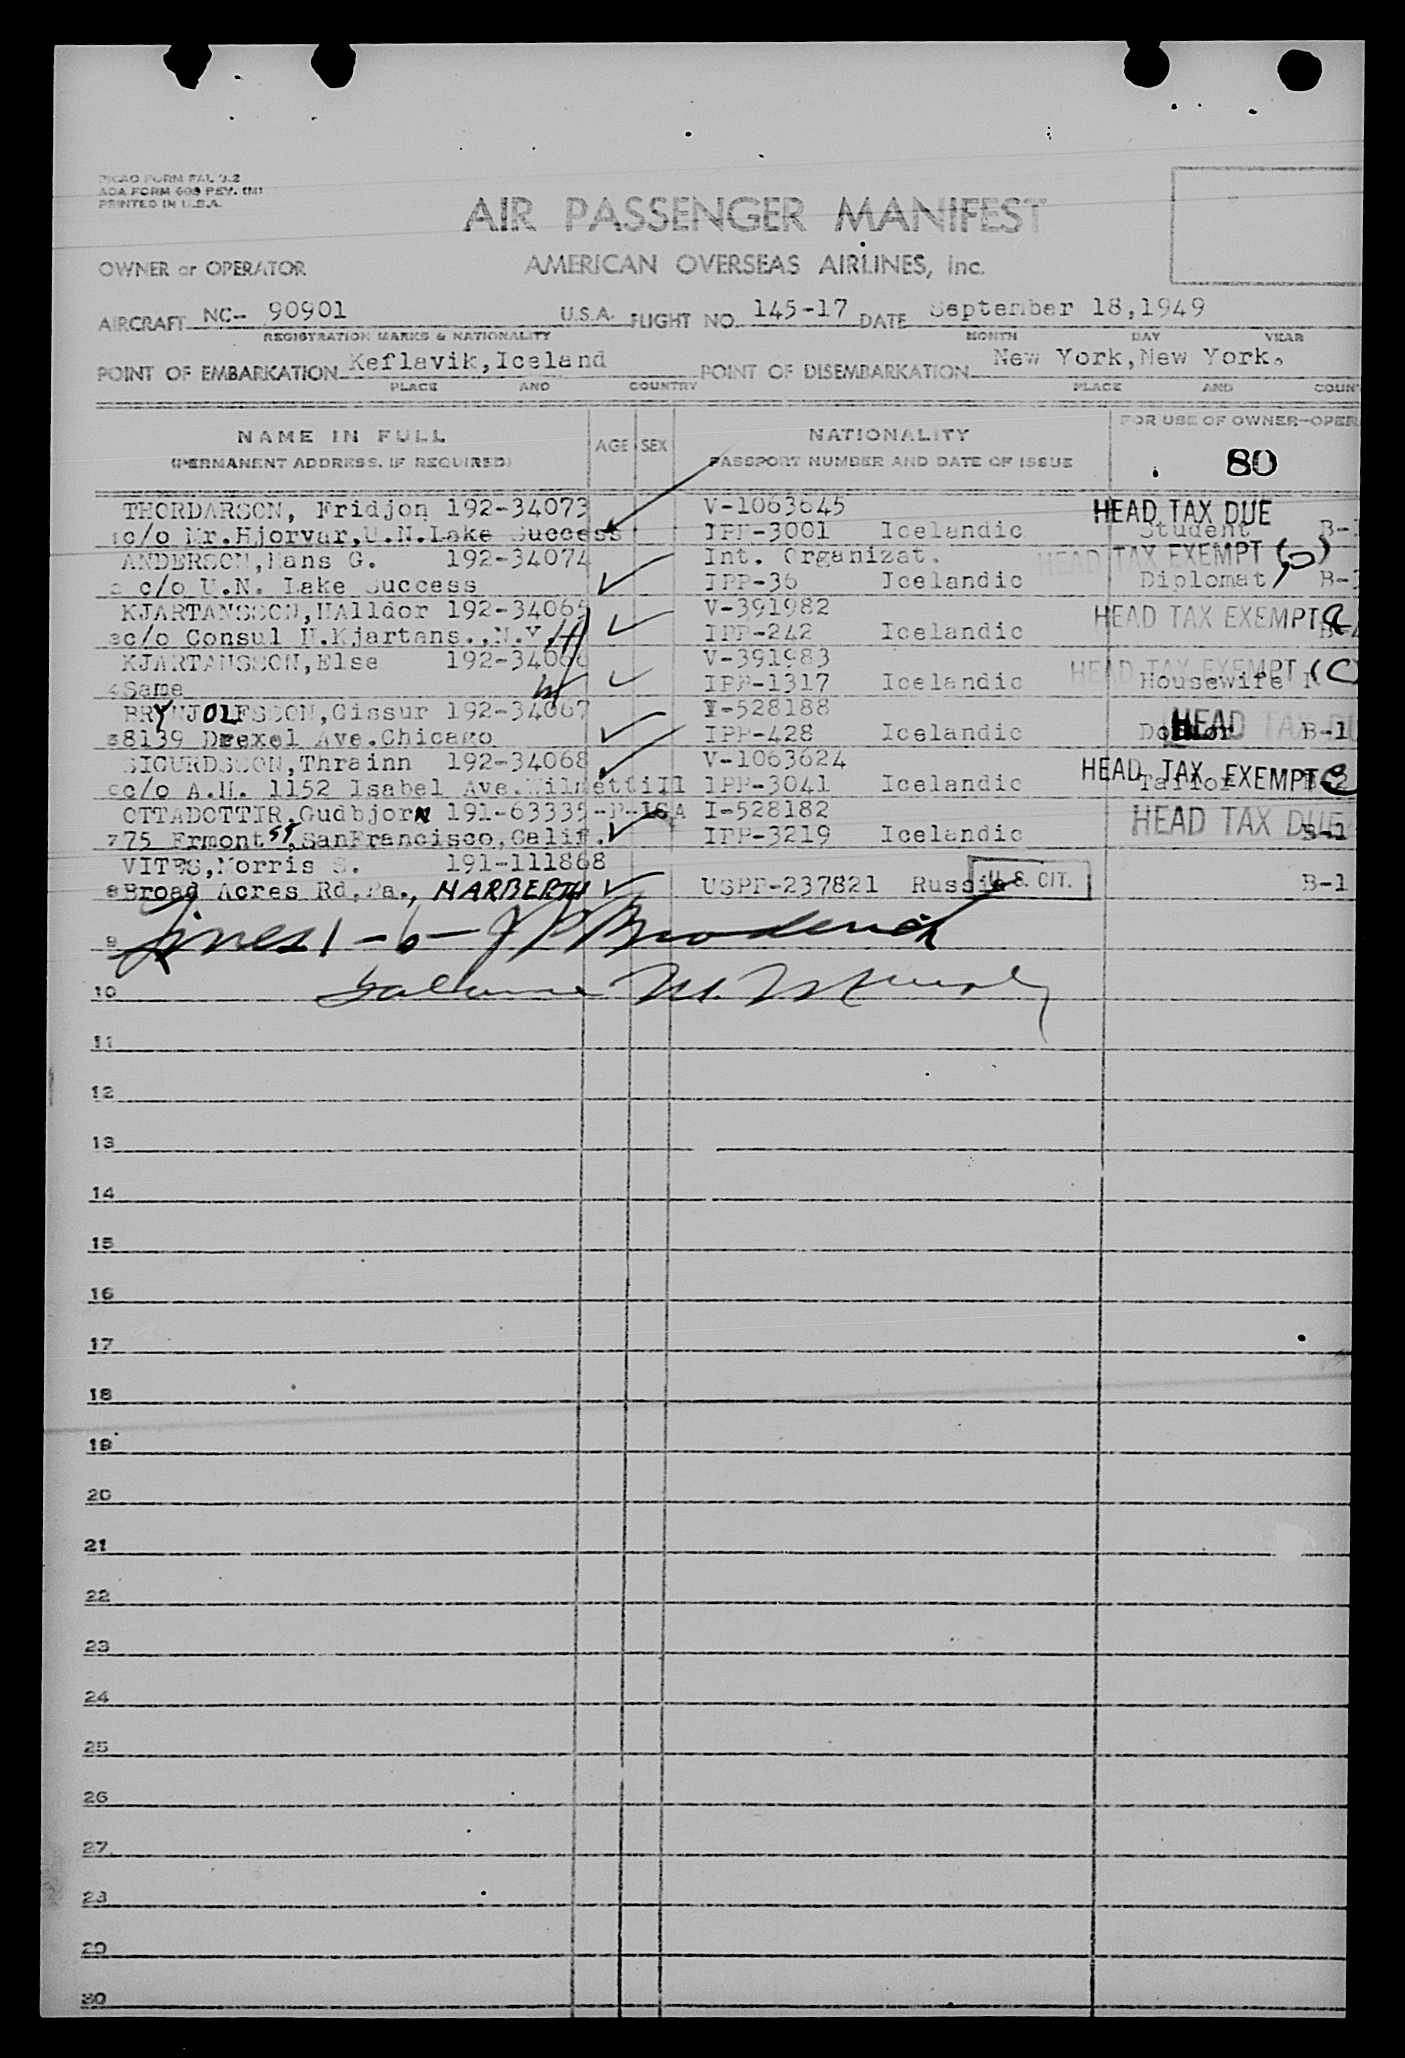 PRINTED IN U.S.A.
AIR PASSENGER MANIFEST
OWNER or OPERATOR AMERICAN OVERSEAS AIRLINES, Inc.
AIRCRAFT NC- 90901 U.S.A. FLIGHT NO. 145-17 DATE September 18,1949
REGISTRATION MARKS & NATIONALITY MONTH DAY YEAR
POINT OF EMBARKATION Keflavik,Iceland POINT OF DISEMBARKATION New York,New York.
PLACE AND COUNTRY PLACE AND COUN
NAME IN FULL AGE SEX NATIONALITY FOR USE OF OWNER-OPER
(PERMANENT ADDRESS, IF REQUIRED) PASSPORT NUMBER AND DATE OF ISSUE 80
THORDARSON, Fridjon 192-34073 V-1063645 HEAD TAX DUE
1 c/o Mr.Hjorvar,U.N.Lake Success IPP-3001 Icelandic Student B-
ANDERSON,Hans G. 192-34074 Int. Organizat. HEAD TAX EXEMPT (D)
2 c/o U.N. Lake Success IPP-36 Icelandic Diplomat B-
KJARTANSSON,HAlldor 192-34065 V-391982 HEAD TAX EXEMPT
3 c/o Consul H.Kjartans.,N.Y. IPP-242 Icelandic B-
KJARTANSSON,Else 192-34066 V-391983 HEAD TAX EXEMPT (C)
4 Same IPP-1317 Icelandic Housewife
BRYNJOLFSSON,Gissur 192-34067 V-528188 HEAD TAX DU
5 8139 Drexel Ave.Chicago IPP-428 Icelandic Doctor B-1
SIGURDSSON,Thrainn 192-34068 V-1063624 HEAD TAX EXEMPT
6 c/o A.H. 1152 Isabel Ave.Wilmette Ill IPP-3041 Icelandic Tailor
OTTADOTTIR,Gudbjorn 191-63335 I-528182 HEAD TAX DUE
7 75 Ermont ST,SanFrancisco,Calif. IPP-3219 Icelandic B-1
VITES,Morris S. 191-111868
8 Broad Acres Rd,Pa., NARBERTH USPP-237821 Russia U.S. CIT. B-1
9 Lines 1-6- J P Broderick
10 M. Murphy
11
12
13
14
15
16
17
18
19
20
21
22
23
24
25
26
27
28
29
30